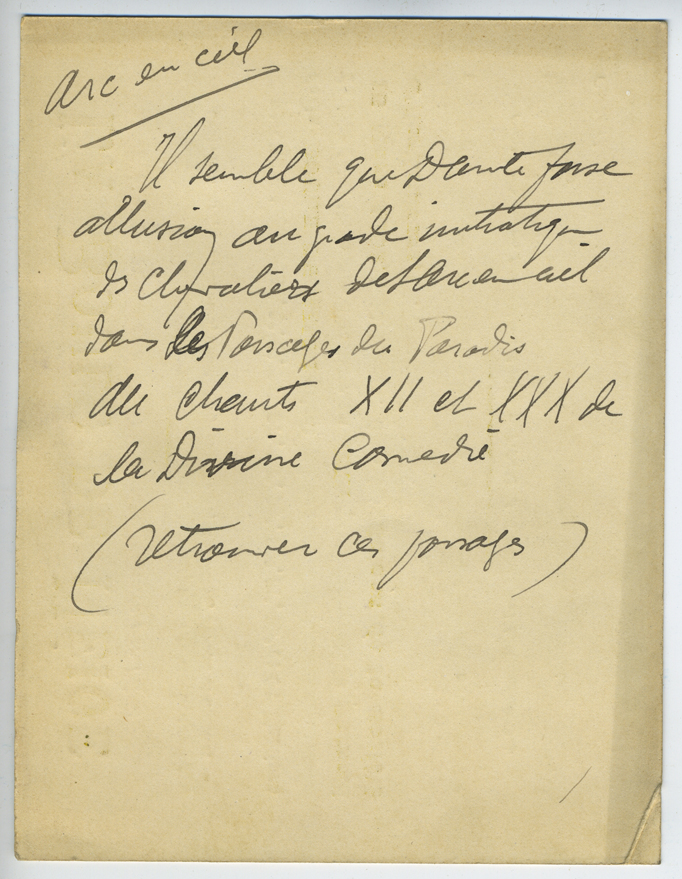 Arc en ciel
Il semble que Dante fasse
allusion au grade initiatique
des Chevaliers de l'Arc en ciel
dans les Passages du Paradis
du chants XII et XXX de
la Divine Comedie
(retrouver ces passages)